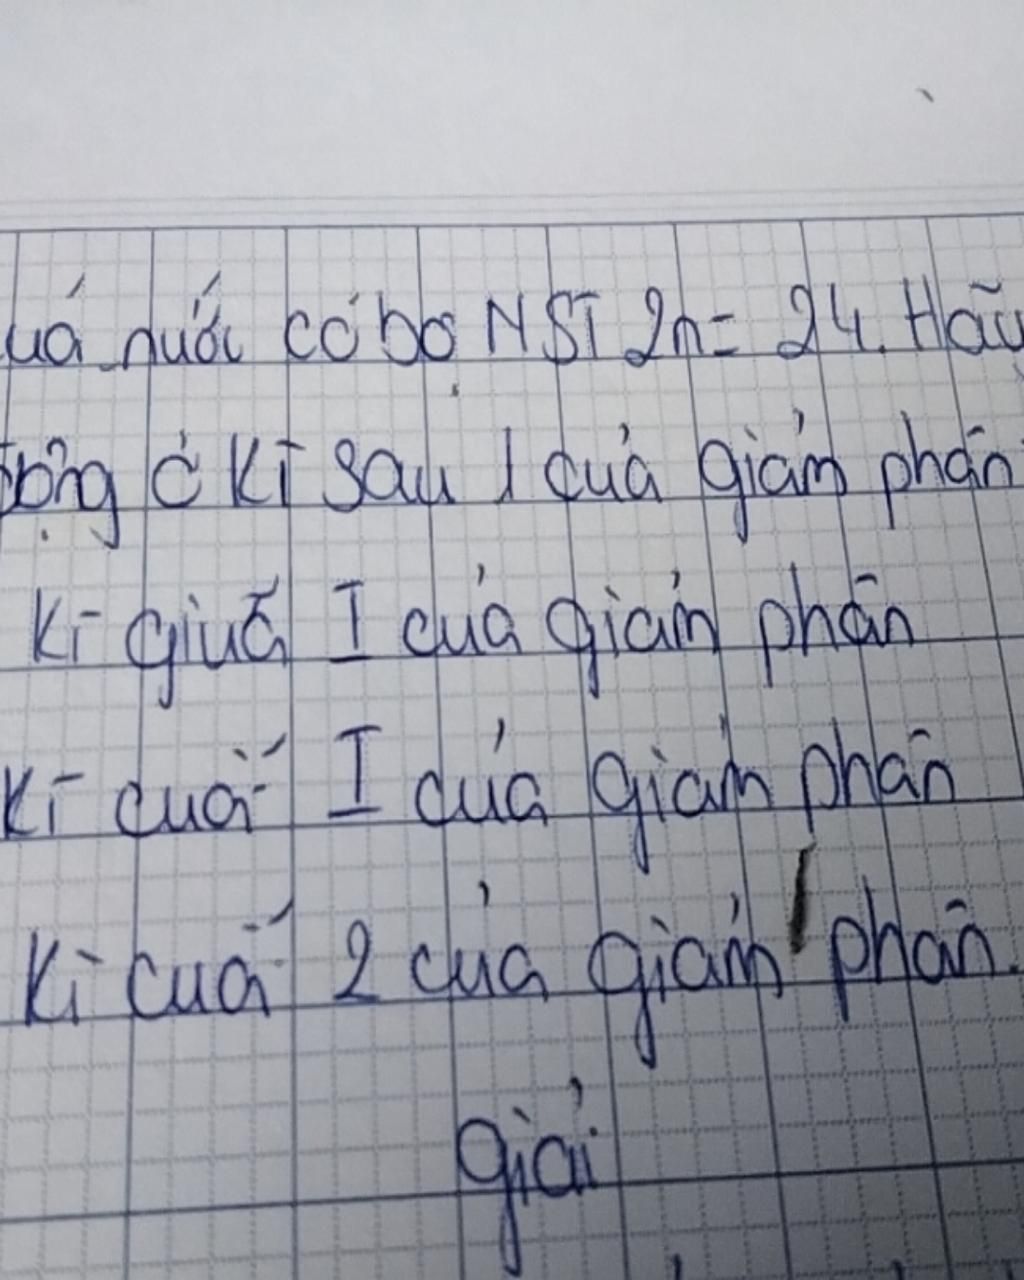 nước có bộ NST 2n = 24. Hãy
ở kì sau 1 của giảm phân
kì giữa I của giảm phân
kì cuối I của giảm phân
kì cuối 2 của giảm phân.
giải